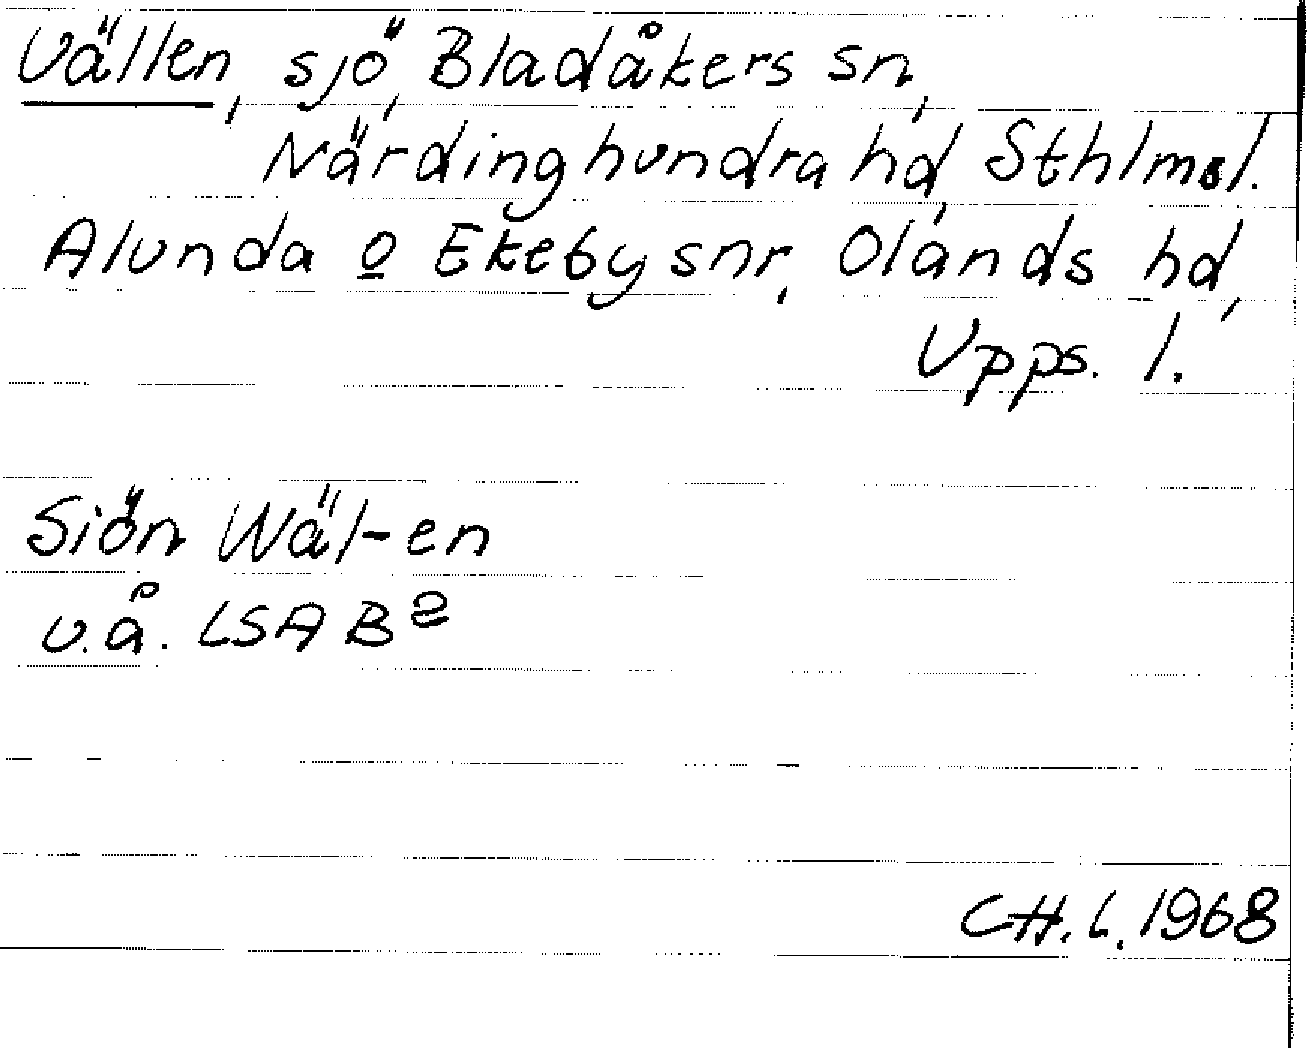 Vällen, sjö, Bladåkers sn,
Närdinghundra hd, Sthlms l.
Alunda o Ekeby snr, Olands hd,
Upps. l.
Siön Wäl-en
u.å. LSA B2
CH.L. 1968